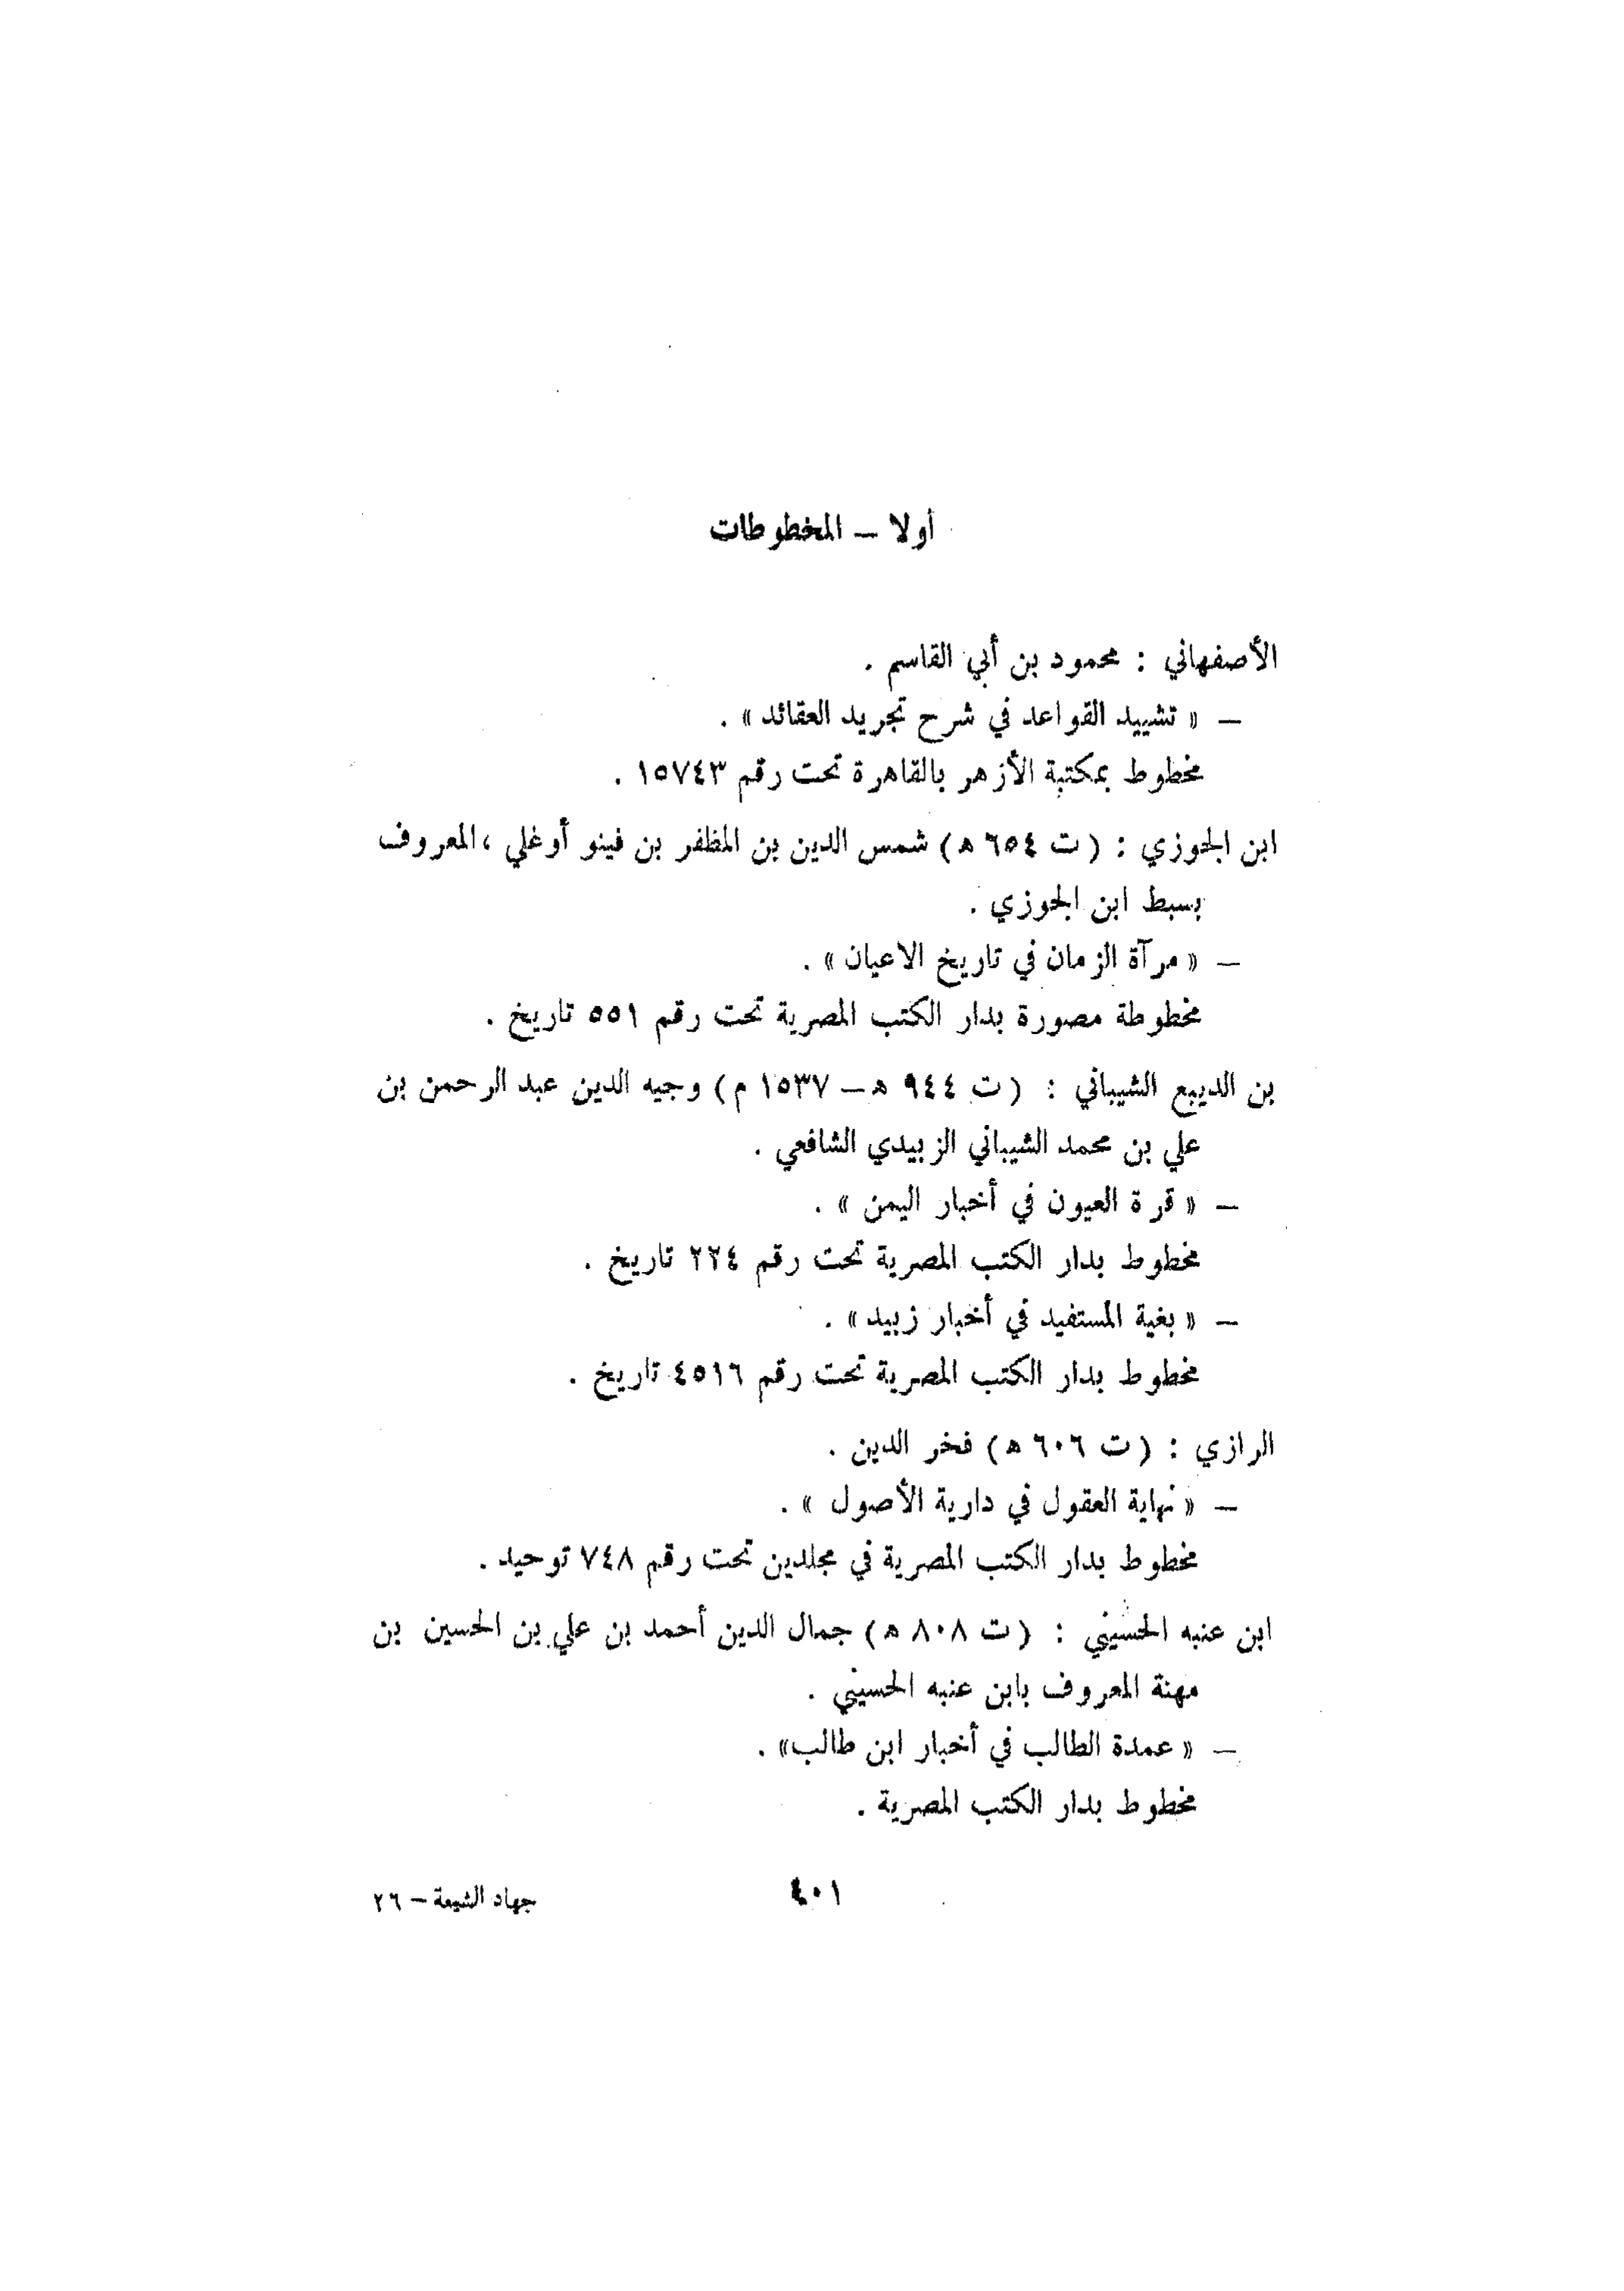 أولا – المخطوطات
الأصفهاني : محمود بن أبي القاسم .
– « تشييد القواعد في شرح تجريد العقائد » .
مخطوط بمكتبة الأزهر بالقاهرة تحت رقم ١٥٧٤٣ .
ابن الجوزي : ( ت ٦٥٤ ه ) شمس الدين بن المظفر بن فينو أوغلي ، المعروف
بسبط ابن الجوزي .
– « مرآة الزمان في تاريخ الاعيان » .
مخطوطة مصورة بدار الكتب المصرية تحت رقم ٥٥١ تاريخ .
بن الديبع الشيباني : ( ت ٩٤٤ ه – ١٥٣٧ م ) وجيه الدين عبد الرحمن بن
علي بن محمد الشيباني الزبيدي الشافعي .
– « قرة العيون في أخبار اليمن » .
مخطوط بدار الكتب المصرية تحت رقم ٢٢٤ تاريخ .
– « بغية المستفيد في أخبار زبيد » .
مخطوط بدار الكتب المصرية تحت رقم ٤٥١٦ تاريخ .
الرازي : ( ت ٦٠٦ ه ) فخر الدين .
– « نهاية العقول في دارية الأصول » .
مخطوط بدار الكتب المصرية في مجلدين تحت رقم ٧٤٨ توحيد .
ابن عنبه الحسيني : ( ت ٨٠٨ ه ) جمال الدين أحمد بن علي بن الحسين بن
مهنة المعروف بابن عنبه الحسيني .
– « عمدة الطالب في أخبار ابن طالب » .
مخطوط بدار الكتب المصرية .
٤٠١
جهاد الشيعة – ٢٦